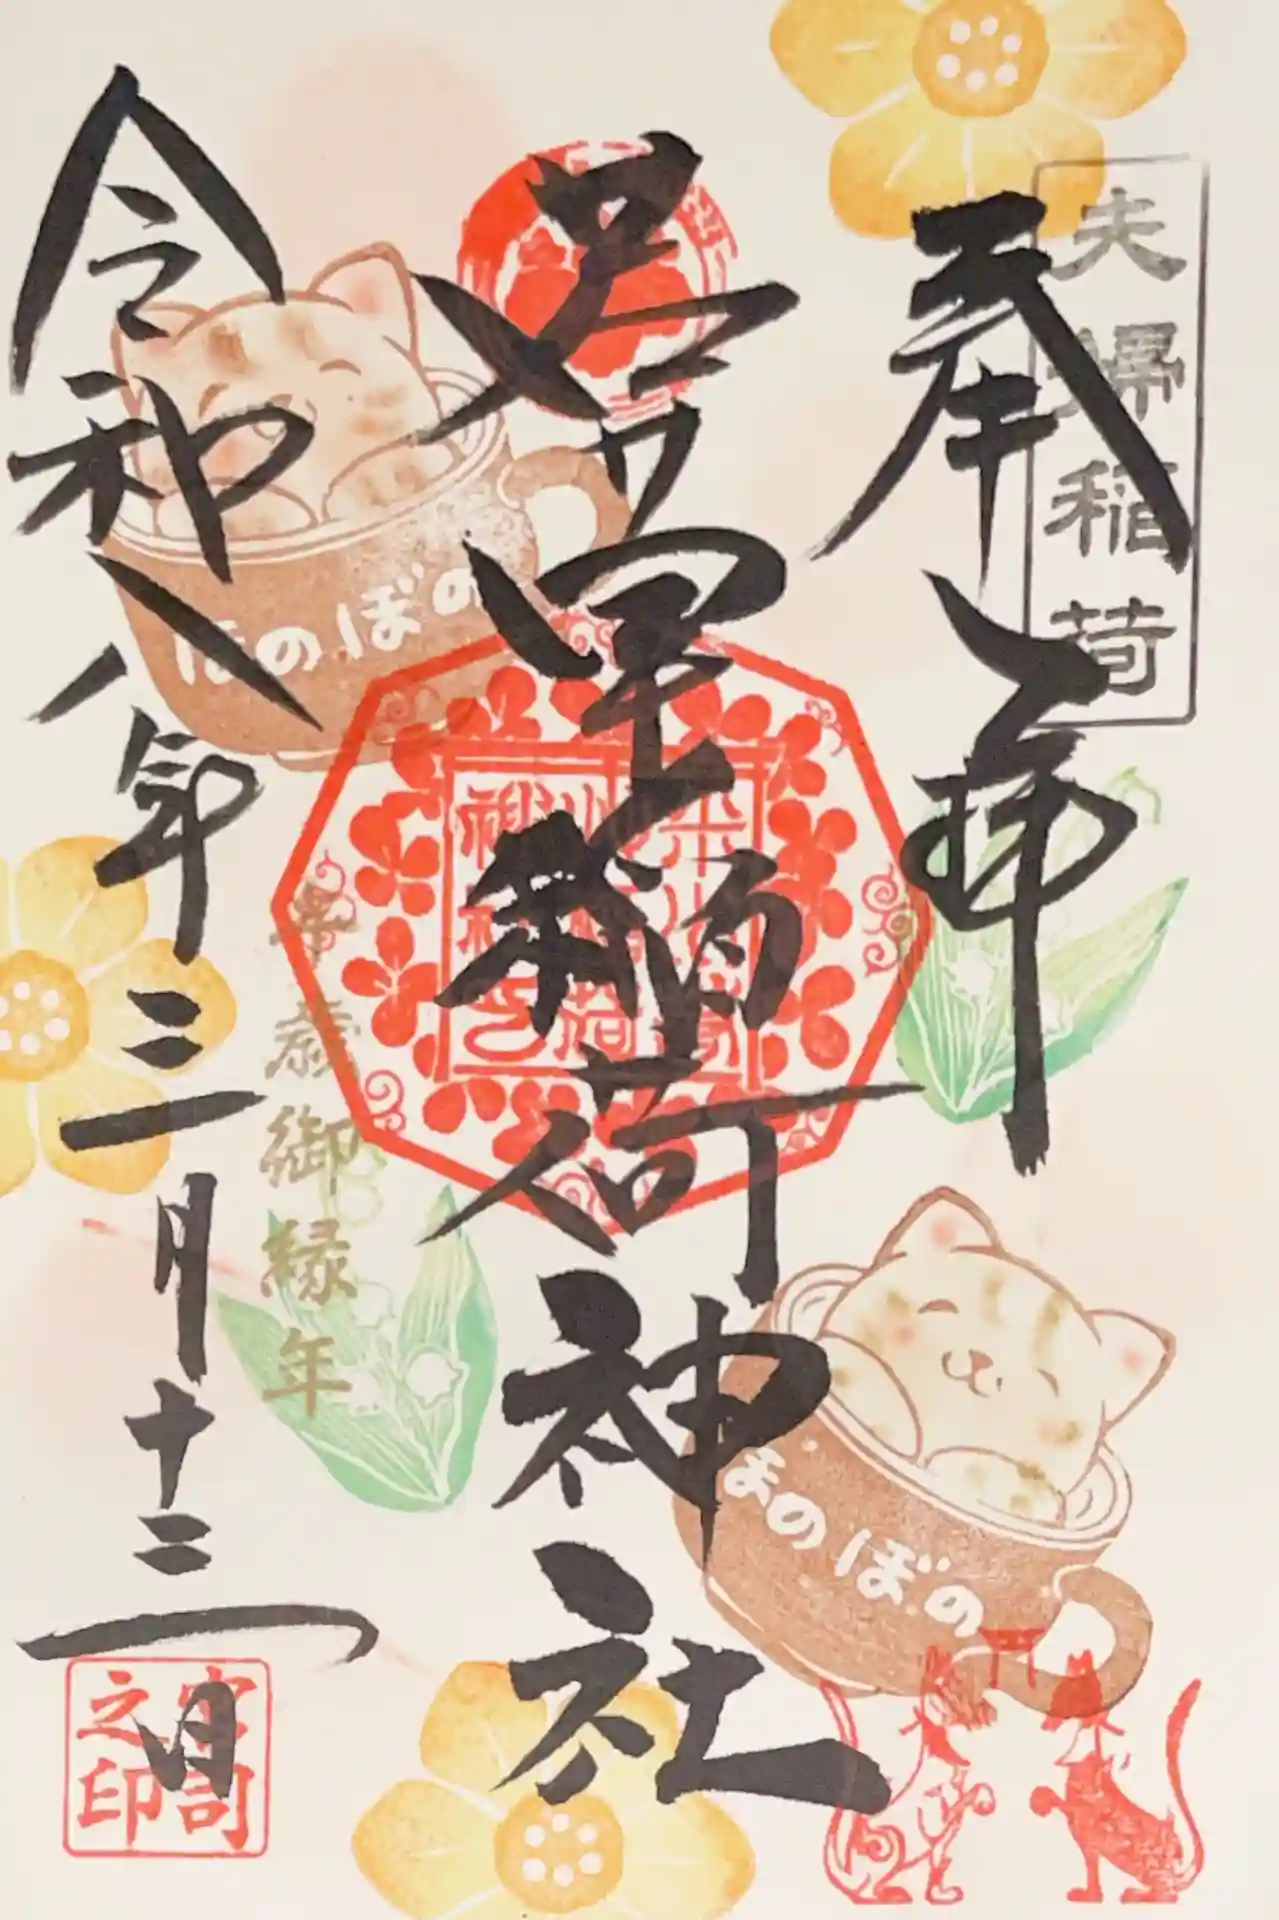 夫婦稲荷
奉拝
稲荷神社
令和八年三月十二日
午歳御縁年
ほのぼの
ほのぼの
宮司之印